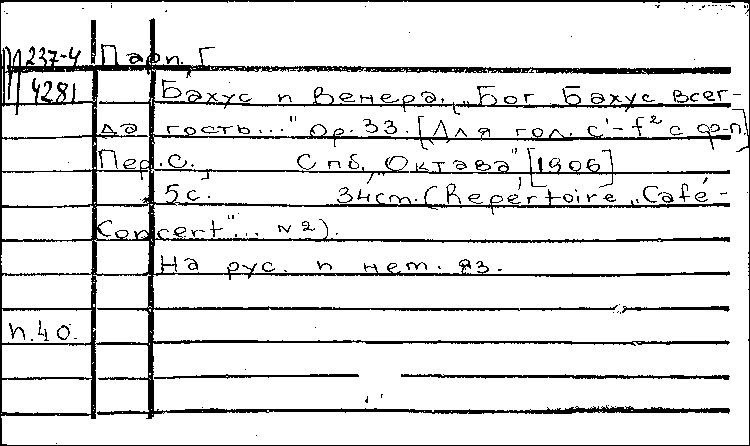 М 237-4 Парп, Г
4281 Бахус п Венера. „Бог Бахус всег-
да гость..." Op. 33. [Для гол. c¹-f² с ф-п.]
Пер. С. Спб, „Октава" [1906]
5с. 34cm. (Repértoire „Café-
Concert"... N2).
На рус. п нем. яз.
п. 40.